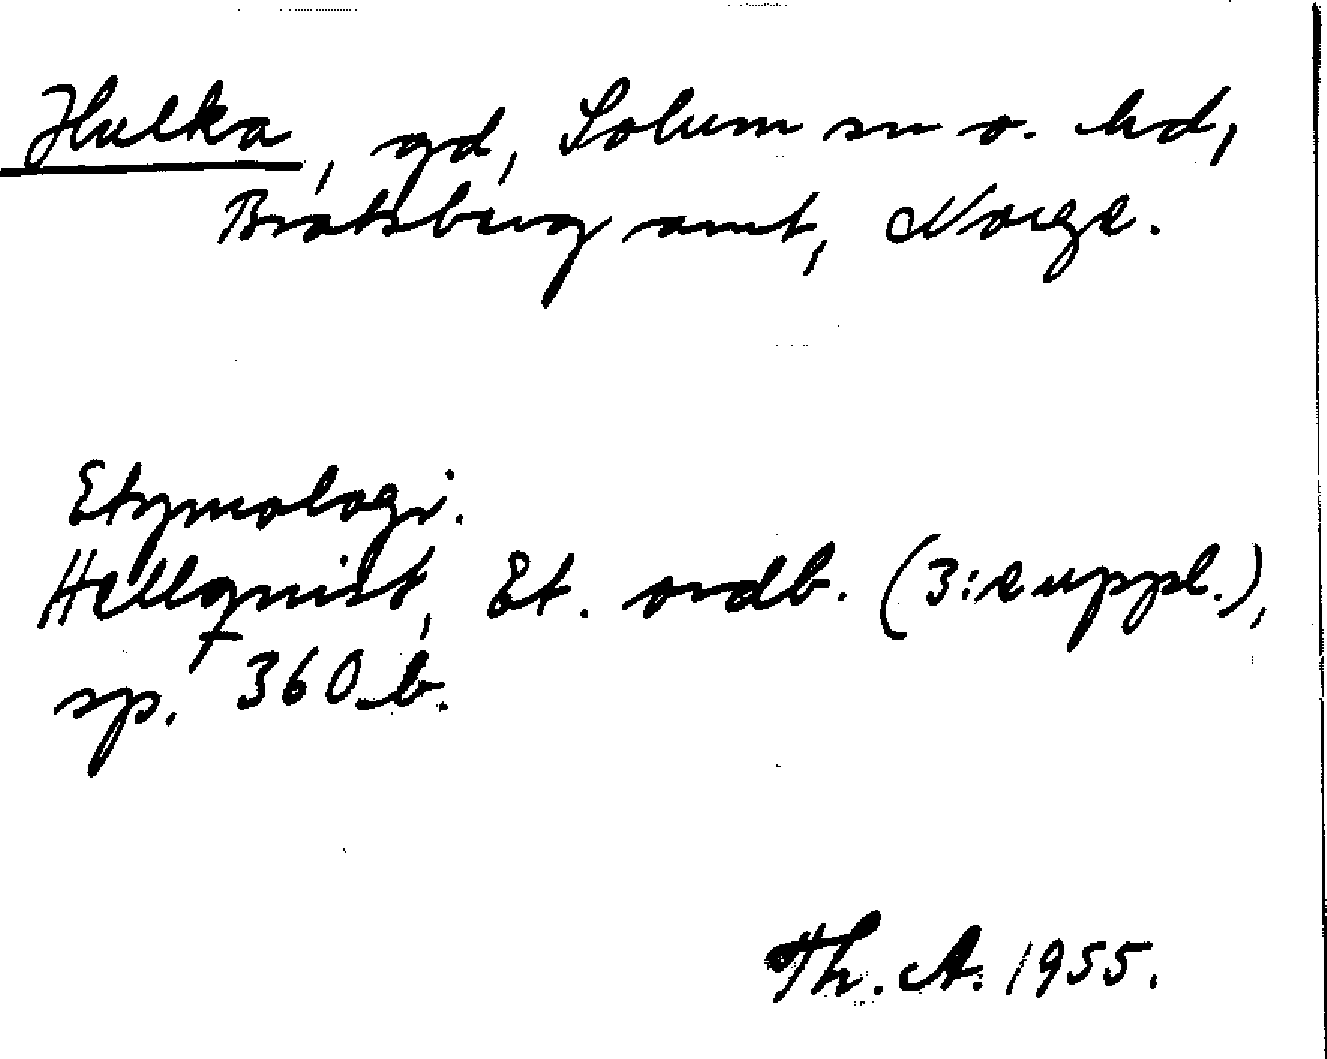 Hulka, gd, Solum sn o. hd,
Bratsberg amt, Norge.
Etymologi.
Hellquist, Et. ordb. (3:e uppl.),
sp. 360 b.
Th. A. 1955.